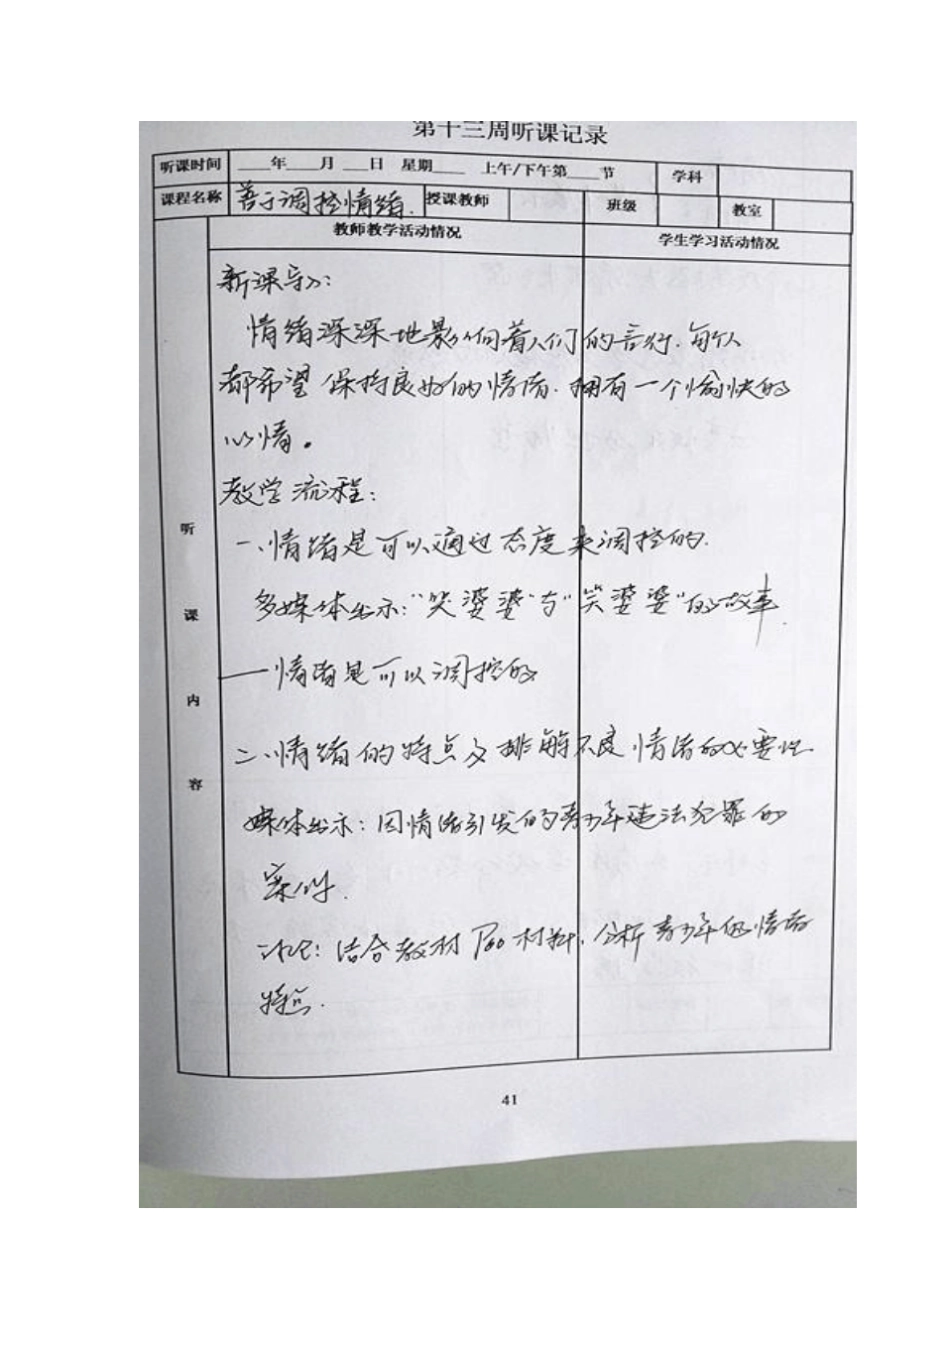 第十三周听课记录
听课时间 ___年___月___日 星期___ 上午/下午第___节 学科
课程名称 善于调控情绪. 授课教师 班级 教室
教师教学活动情况 学生学习活动情况
新课导入:
情绪深深地影响着人们的言行.每个人
都希望保持良好的情绪.拥有一个愉快的
心情。
教学流程:
一、情绪是可以通过态度来调控的.
多媒体出示:"哭婆婆"与"笑婆婆"的故事.
—情绪是可以调控的
二、情绪的特点及排解不良情绪的必要性
媒体出示:因情绪引发的青少年违法犯罪的
案例.
讨论:结合教材P60材料,分析青少年的情绪
特点.
听
课
内
容
41